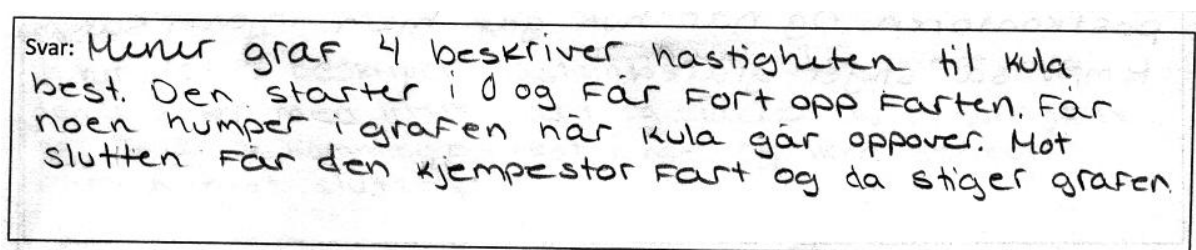 Svar: Mener graf 4 beskriver hastigheten til kula
best. Den starter i 0 og får fort opp farten. Får
noen humper i grafen når kula går oppover. Mot
slutten får den kjempestor fart og da stiger grafen